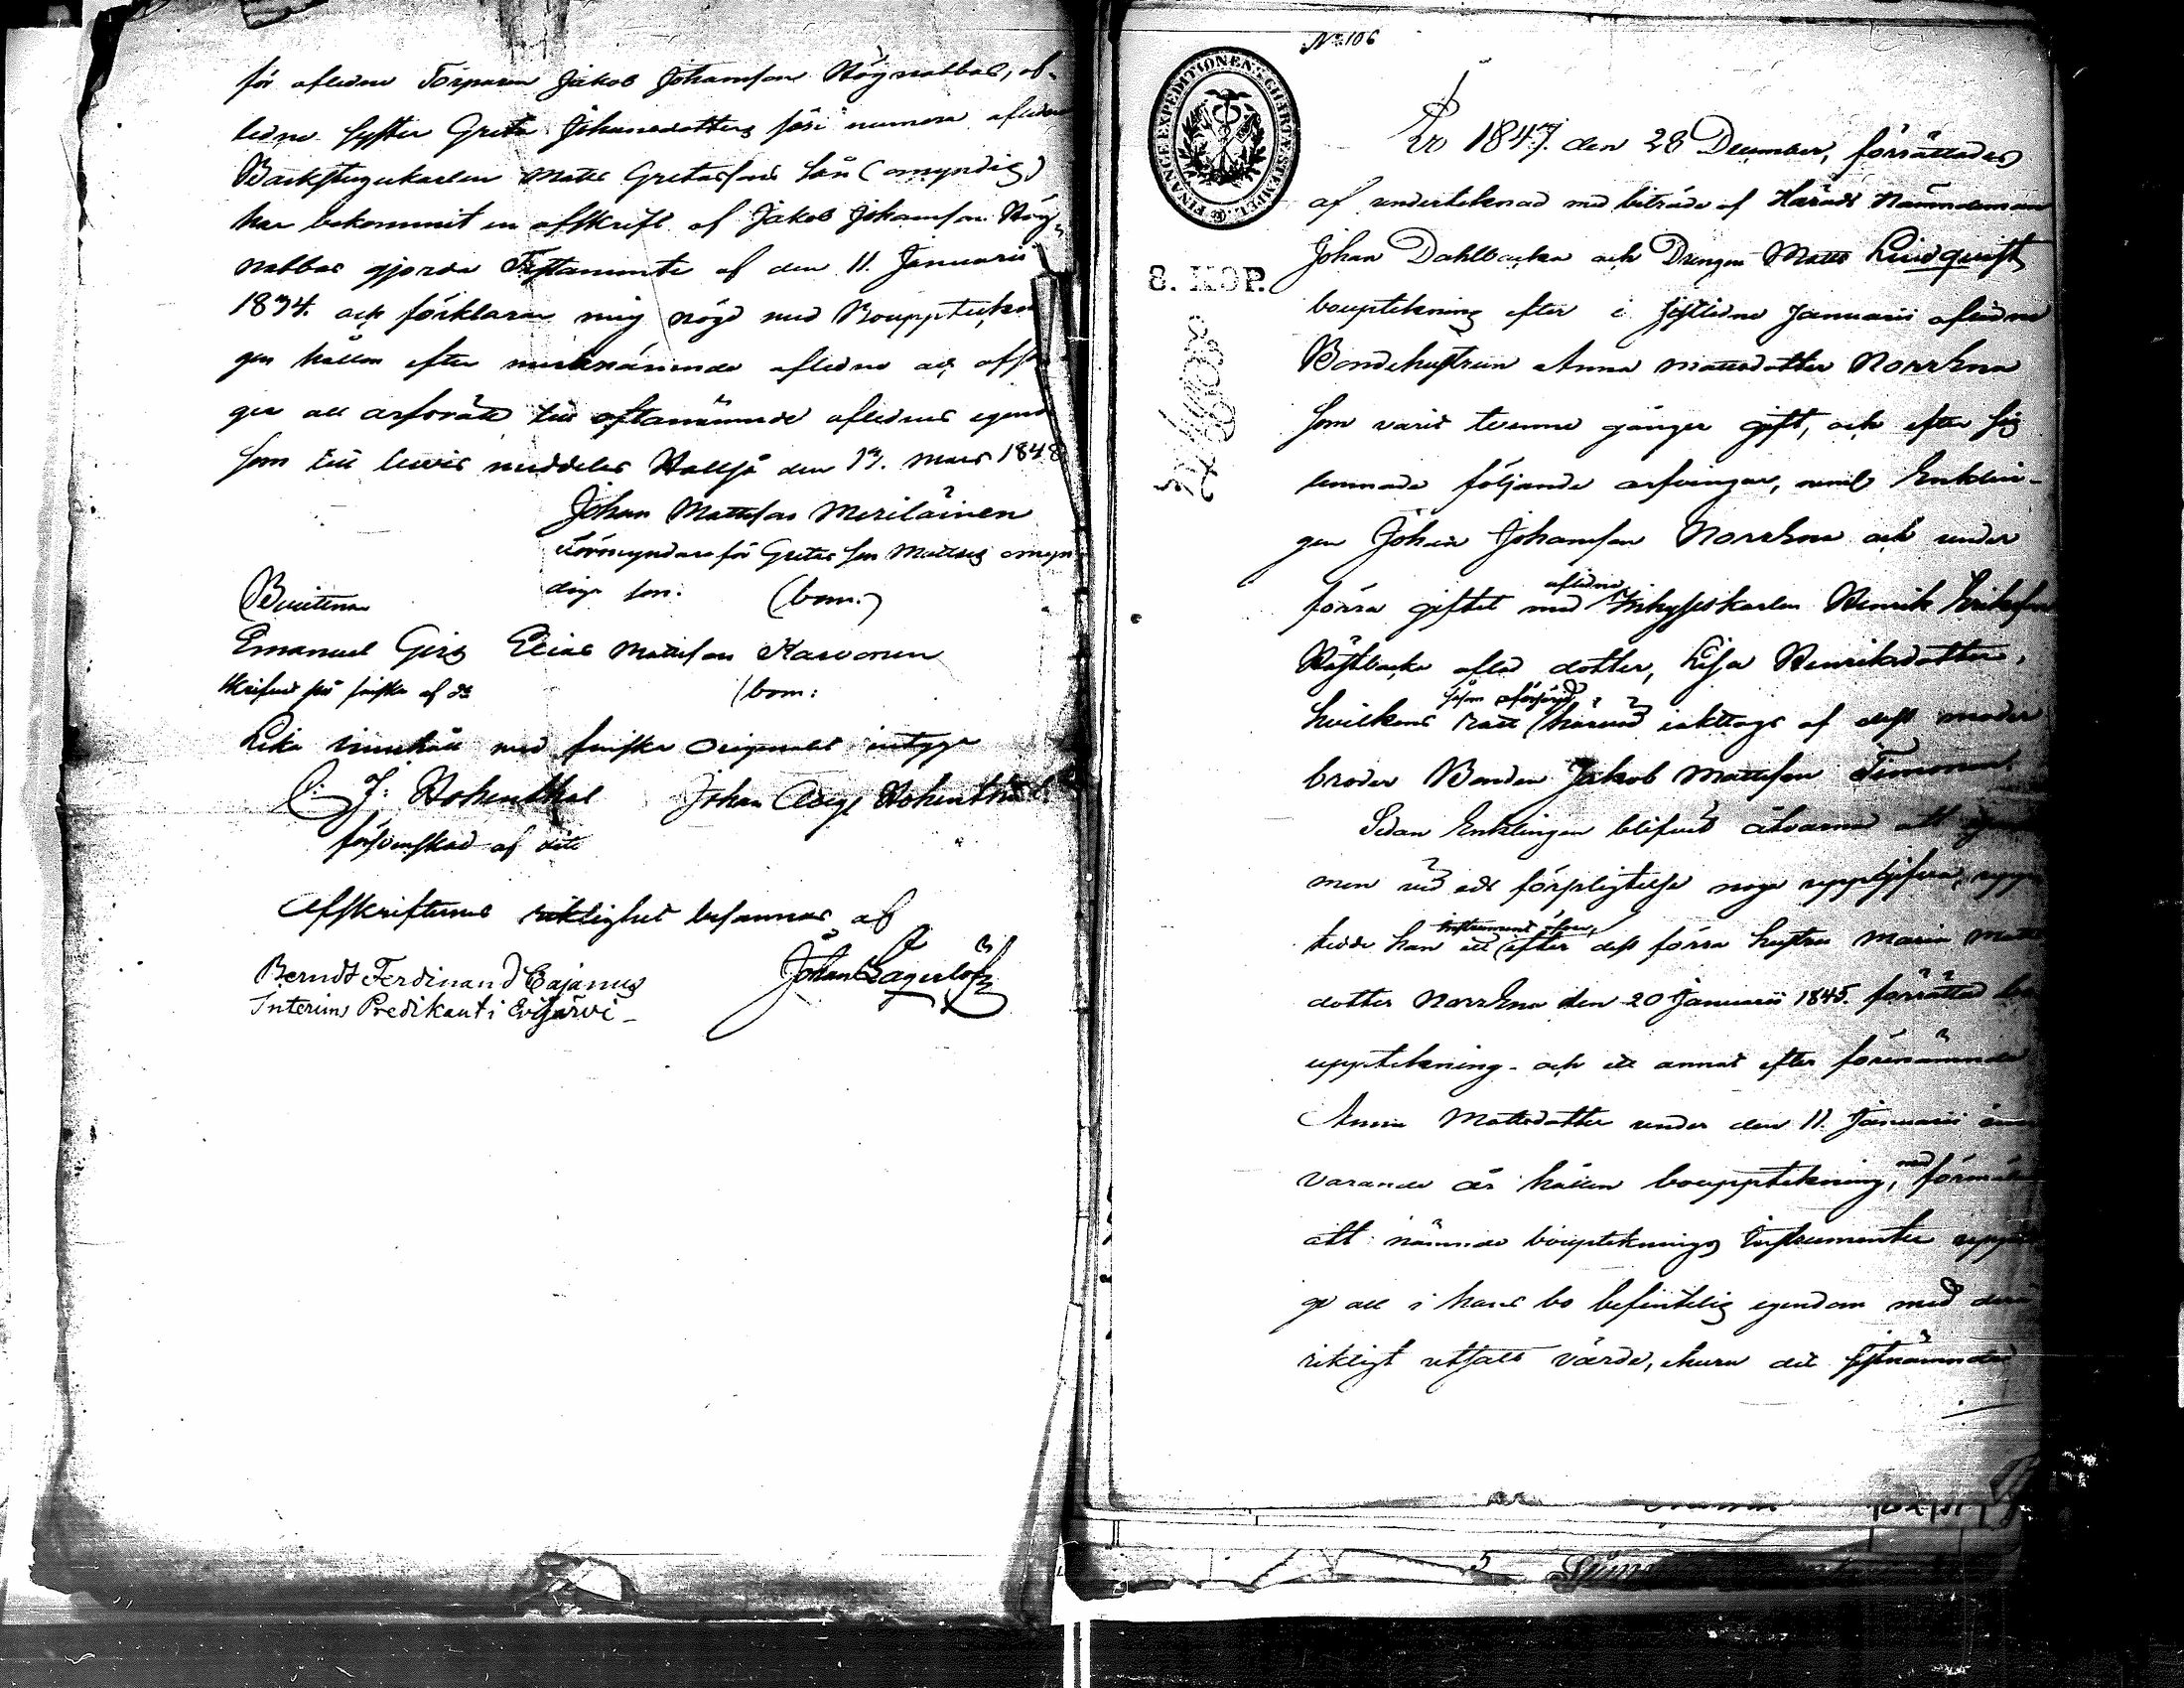 för afledne Torparen Jakob Johansson Högnabbas, af-
ledne Syster Greta Johansdotters son numera afledne
Backstugukarlen Matts Gretasons son (omyndig)
har bekommit en afskrift af Jakob Johansson Hög-
nabbas gjorda Testamente af den 11. Januarii
1834. och förklarar mig nöjd med Boupptekn
gen hållen efter merbenämnde afledne och afsä
ger all arfsrätt till oftanämnde aflednes egend
som till bevis meddelas Wallsjå den 17. Mars 1848
Johan Mattsson Meriläinen
Förmyndare för Gretas son Mattses omyn
dige son. (bom.)
Bevittna
Emanuel Girs Elias Mattsson Karvonen
Skrifvit på finska af ds (bom:
Lika innehåll med finska Originalet intyga
C. J. Hohenthal Johan Aage Hohenthal
försvenskad af dito
Afskriftens riktighet besannas af
Berndt Ferdinand Cajanus Johan Lagerlöf
Interims Predikant i Evijärvi
No 106
FINANCE EXPEDITIONENS CHARTÆ STEMPEL
8. KOP.
År 1847. den 28 December, förrättades
af undertecknad med biträde af Härads Nämndeman
Johan Dahlbacka och Drengen Matts Lindqvist
bouptekning efter i sistledne Januarii aflidne
Bondehustrun Anna Mattsdotter Norrena
som varit tvenne gånger gift, och efter sig
lemnade följande arfvingar, neml Enklin-
gen Johan Johansson Norrena och under
förra giftet med afledne Inhyseskarlen Henrik Eriksson
Wästbacka afled dotter, Lisa Henriksdotter,
hvilkens rätt härvid iakttogs af dess moder
broder Bonden Jakob Mattsson Timonen.
Sedan Enklingen blifvit åtvarnad att
men vid eds förpligtelse noga uppgifva, upp
tedde han ett instrument öfver efter dess förra hustru Maria Matts
dotter Norrena den 20 Januarii 1845. förrättad bo
upptekning och ett annat efter förenämnde
Anna Mattsdotter under den 11 Januarii inne
varande år hållen bouppteckning, med förmälan
att nämnde bouptecknings Instrumenter uppt
ge all i hans bo befintelig egendom med dess
riktigt utsatt värde, ehuru det sistnämnde